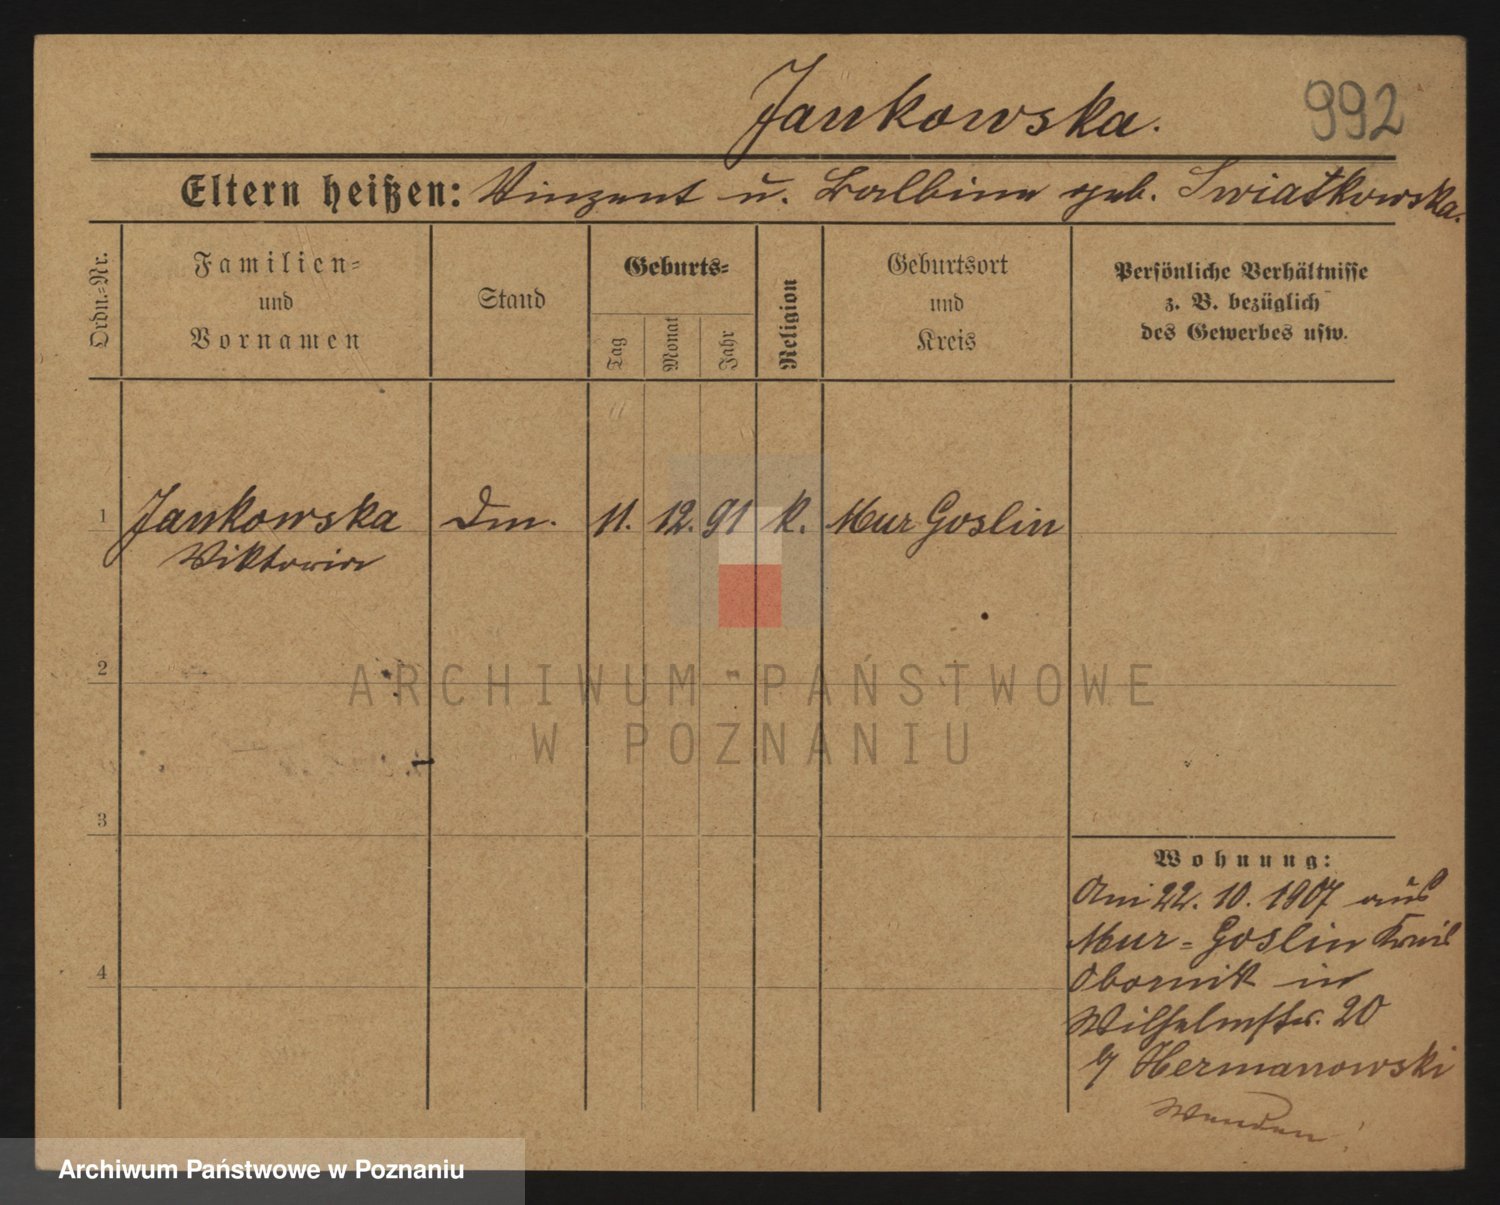 Jankowska.
992
Eltern heißen: Vinzent u. Balbina geb. Swiatkowska.
Ordn.-Nr.
Familien-
und
Vornamen
Stand
Geburts-
Tag
Monat
Jahr
Religion
Geburtsort
und
Kreis
Persönliche Verhältnisse
z. B. bezüglich
des Gewerbes usw.
1 Jankowska Dm. 11. 12. 91 k. Mur Goslin
Viktoria
2
ARCHIWUM PAŃSTWOWE
W POZNANIU
3
Wohnung:
Am 22. 10. 1907 aus
Mur-Goslin Kreis
4
Obornik in
Wilhelmstr. 20
b/ Hermanowski
Wenden!
Archiwum Państwowe w Poznaniu